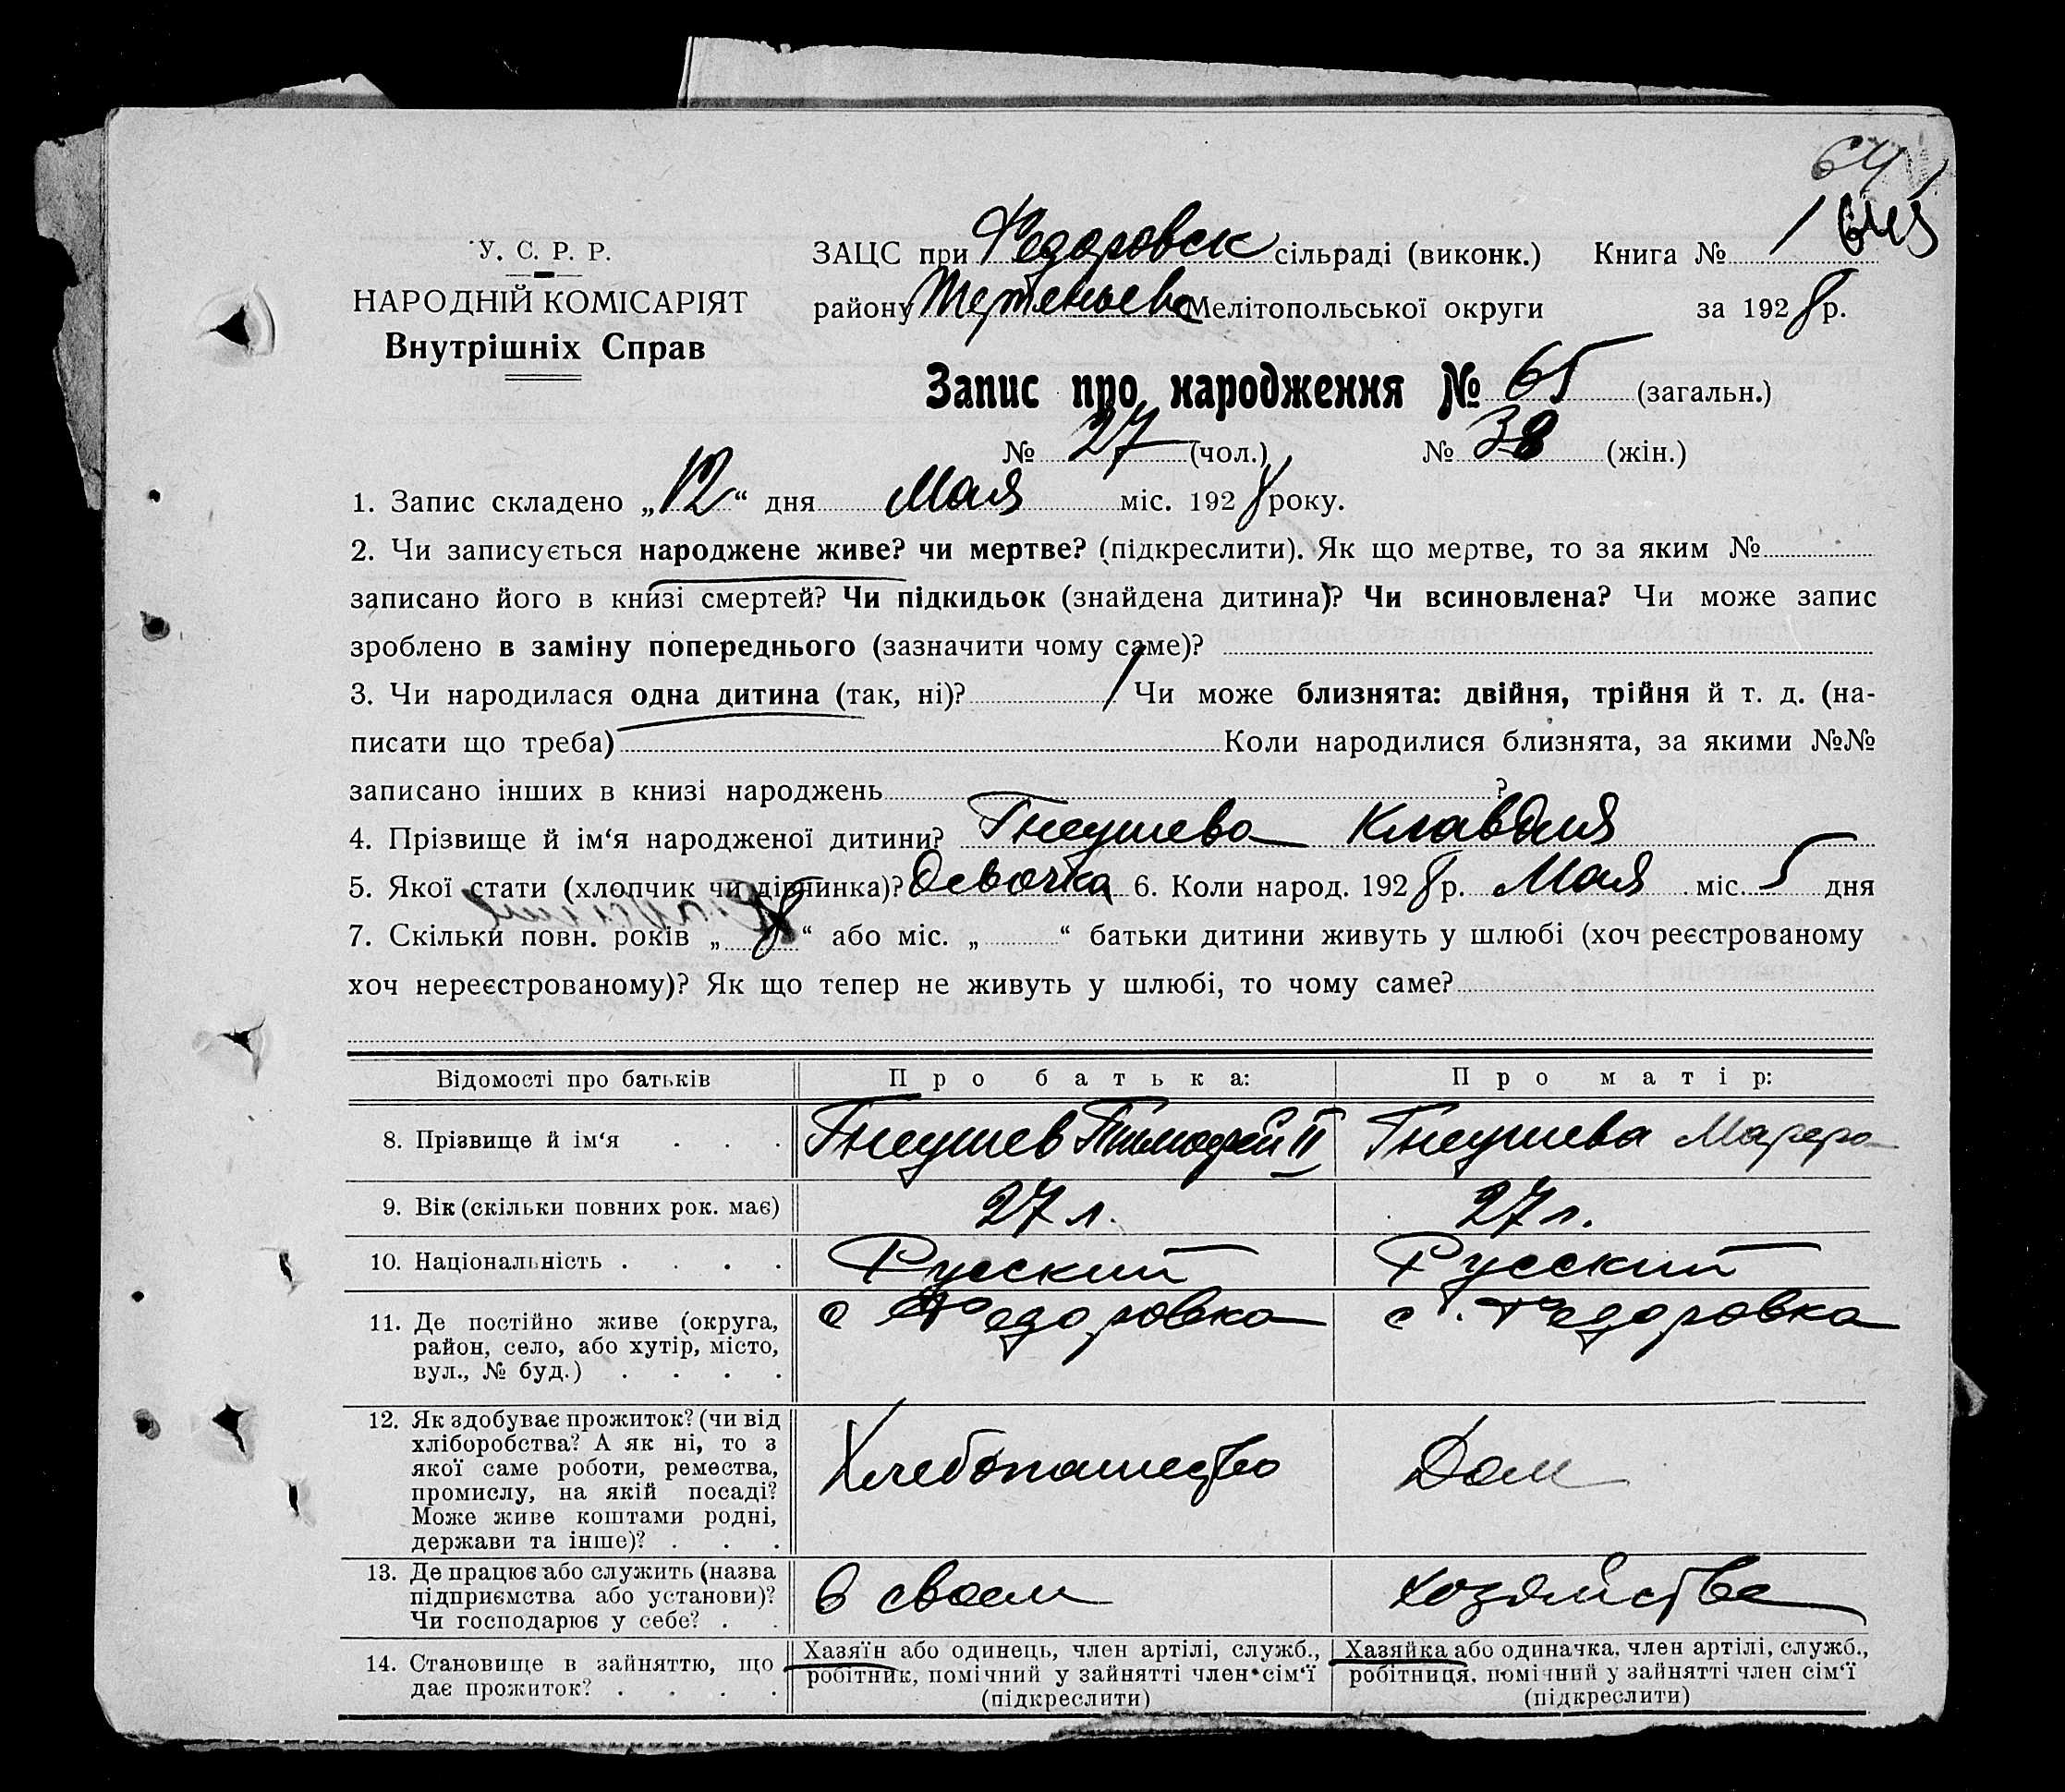 64
У. С. Р. Р.
НАРОДНІЙ КОМІСАРІЯТ
Внутрішніх Справ
ЗАЦС при Федоровск сільраді (виконк.) Книга № 1
району Мелітопольської округи за 1928 р.
Запис про народження № 65 (загальн.)
№ 27 (чол.) № 38 (жін.)
1. Запис складено „12“ дня Мая міс. 1928 року.
2. Чи записується народжене живе? чи мертве? (підкреслити). Як що мертве, то за яким №
записано його в книзі смертей? Чи підкидьок (знайдена дитина)? Чи всиновлена? Чи може запис
зроблено в заміну попереднього (зазначити чому саме)?
3. Чи народилася одна дитина (так, ні)? 1 Чи може близнята: двійня, трійня й т. д. (на-
писати що треба) Коли народилися близнята, за якими №№
записано інших в книзі народжень ?
4. Прізвище й ім‘я народженої дитини? Гнеушева Клавдия
5. Якої стати (хлопчик чи дівчинка)? Девочка 6. Коли народ. 1928 р. Мая міс. 5 дня
7. Скільки повн. років „8“ або міс. „ “ батьки дитини живуть у шлюбі (хоч реєстрованому
хоч нереєстрованому)? Як що тепер не живуть у шлюбі, то чому саме?
Відомості про батьків Про батька: Про матір:
8. Прізвище й ім‘я Гнеушев Тимофей II Гнеушева
9. Вік (скільки повних рок. має) 27 л. 27 л.
10. Національність Русский Русский
11. Де постійно живе (округа, район, село, або хутір, місто, вул., № буд.) с Федоровка с. Федоровка
12. Як здобуває прожиток? (чи від хліборобства? А як ні, то з якої саме роботи, ремества, промислу, на якій посаді? Може живе коштами родні, держави та інше)? Хлебопашество Дом
13. Де працює або служить (назва підприємства або установи)? Чи господарює у себе? В своем хозяйстве
14. Становище в зайняттю, що дає прожиток? Хазяїн або одинець, член артілі, служб., робітник, помічний у зайнятті член сім‘ї (підкреслити) Хазяйка або одиначка, член артілі, служб., робітниця, помічний у зайнятті член сім‘ї (підкреслити)